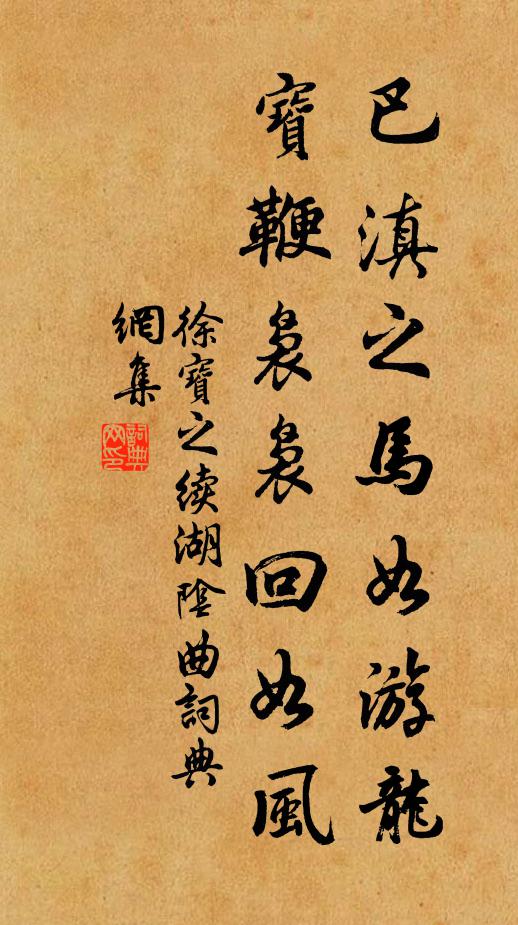 巴滇之馬如游龍
寶鞭裊裊回如風
徐寶之续湖陰曲詞典
網集
詞典
网印